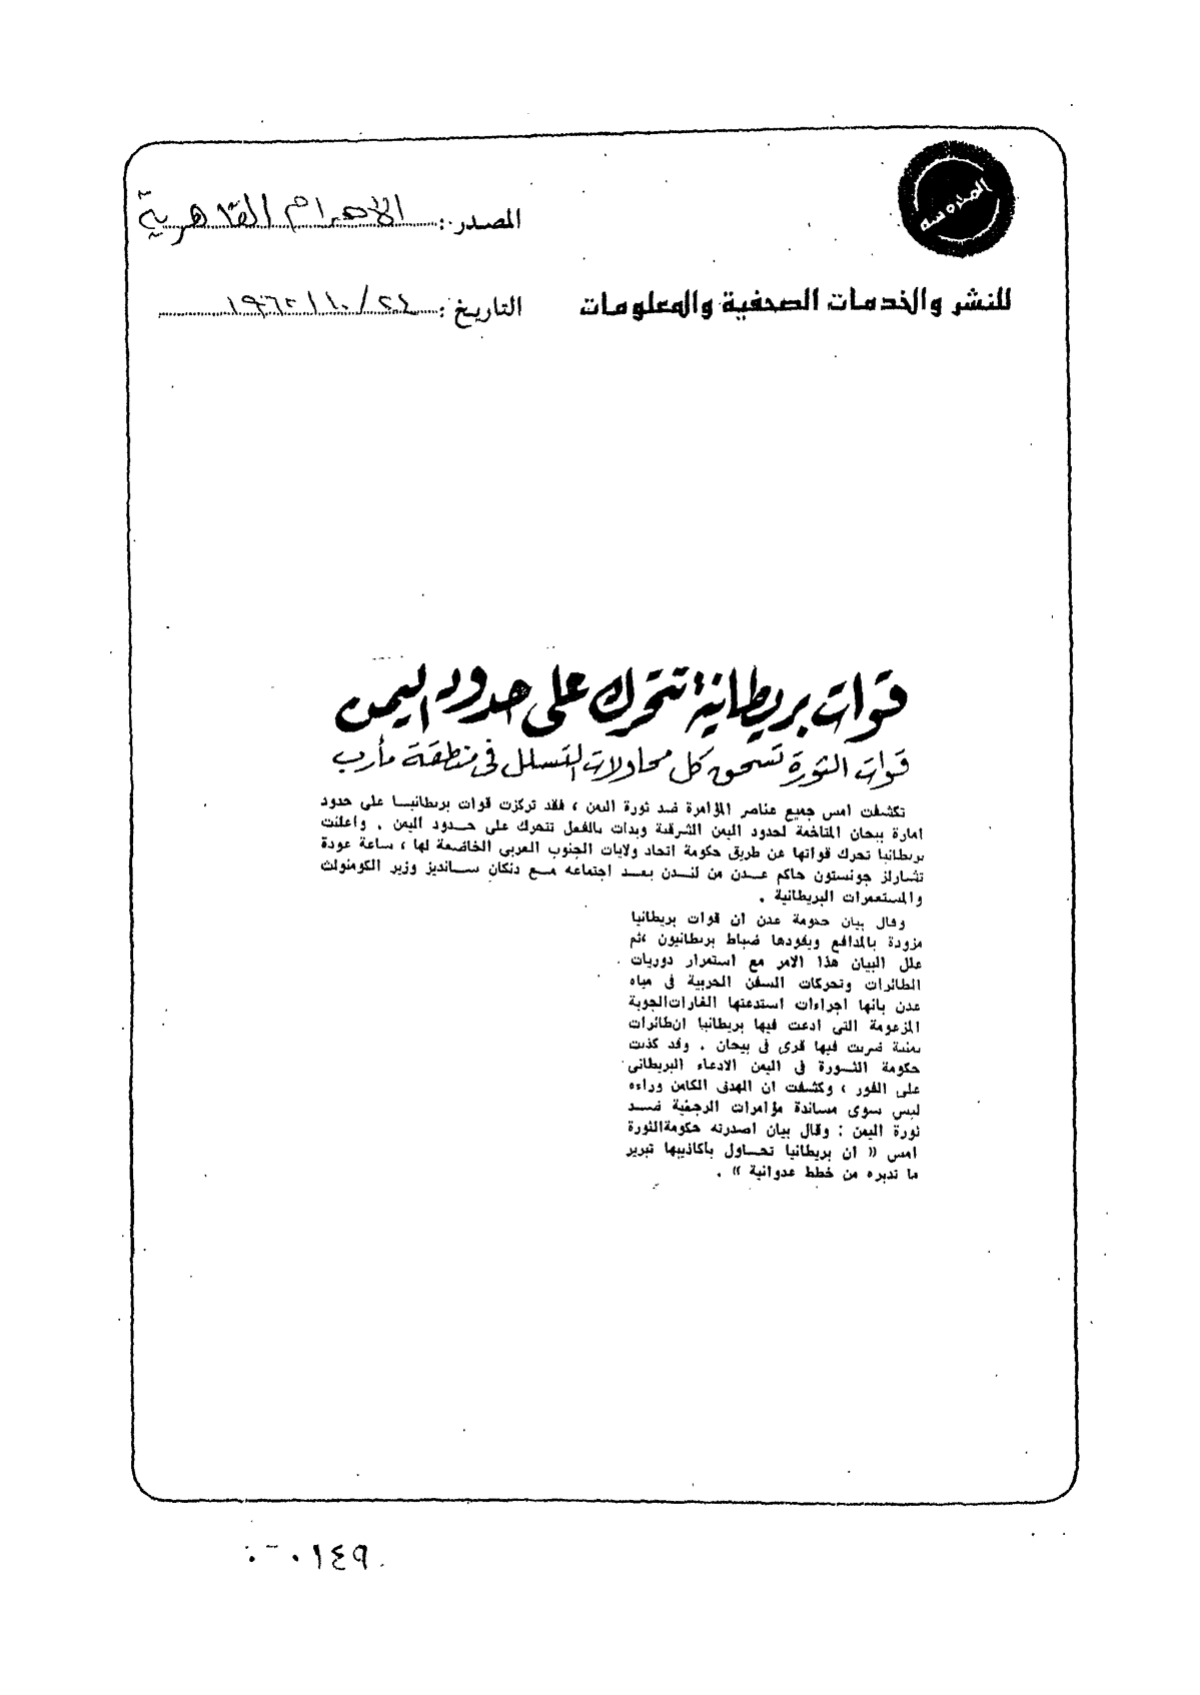 المصدر : الأهرام القاهرية
للنشر والخدمات الصحفية والمعلومات
التاريخ : ٢٤ / ١٠ / ١٩٦٢
قوات بريطانية تتحرك على حدود اليمن
قوات الثورة تسحق كل محاولات التسلل فى منطقة مأرب
تكشفت امس جميع عناصر المؤامرة ضد ثورة اليمن ، فقد تركزت قوات بريطانيا على حدود
امارة بيحان المتاخمة لحدود اليمن الشرقية وبدات بالفعل تتحرك على حدود اليمن . واعلنت
بريطانيا تحرك قواتها عن طريق حكومة اتحاد ولايات الجنوب العربى الخاضعة لها ، ساعة عودة
تشارلز جونستون حاكم عدن من لندن بعد اجتماعه مع دنكان سانديز وزير الكومنولث
والمستعمرات البريطانية .
وقال بيان حكومة عدن ان قوات بريطانيا
مزودة بالمدافع ويقودها ضباط بريطانيون ،ثم
علل البيان هذا الامر مع استمرار دوريات
الطائرات وتحركات السفن الحربية فى مياه
عدن بانها اجراءات استدعتها الغارات الجوية
المزعومة التى ادعت فيها بريطانيا ان طائرات
يمنية ضربت فيها قرى فى بيحان . وقد كذبت
حكومة الثورة فى اليمن الادعاء البريطانى
على الفور ، وكشفت ان الهدف الكامن وراءه
ليس سوى مساندة مؤامرات الرجعية ضد
ثورة اليمن : وقال بيان اصدرته حكومة الثورة
امس « ان بريطانيا تحاول بأكاذيبها تبرير
ما تدبره من خطط عدوانية » .
٠١٤٩